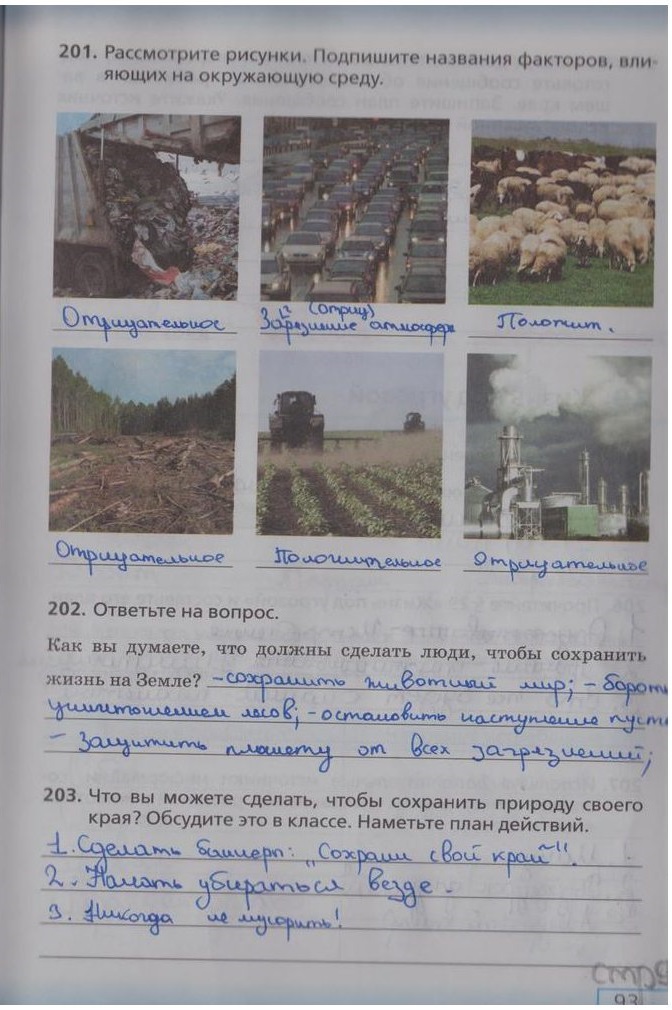 201. Рассмотрите рисунки. Подпишите названия факторов, вли-
яющих на окружающую среду.
Отрицательное
(отриц)
Заразшие атмосфере
Положит.
Отрицательное
Положительное
Отрицательное
202. Ответьте на вопрос.
Как вы думаете, что должны сделать люди, чтобы сохранить
жизнь на Земле? -сохранить животный мир; - бороть
уничтожением лесов; -остановить наступление пусты
- Защитить планету от всех загрязнений;
203. Что вы можете сделать, чтобы сохранить природу своего
края? Обсудите это в классе. Наметьте план действий.
1. Сделать баннеры: „Сохрани свой край".
2. Начать убираться везде.
3. Никогда не мусорить!
стр9
93